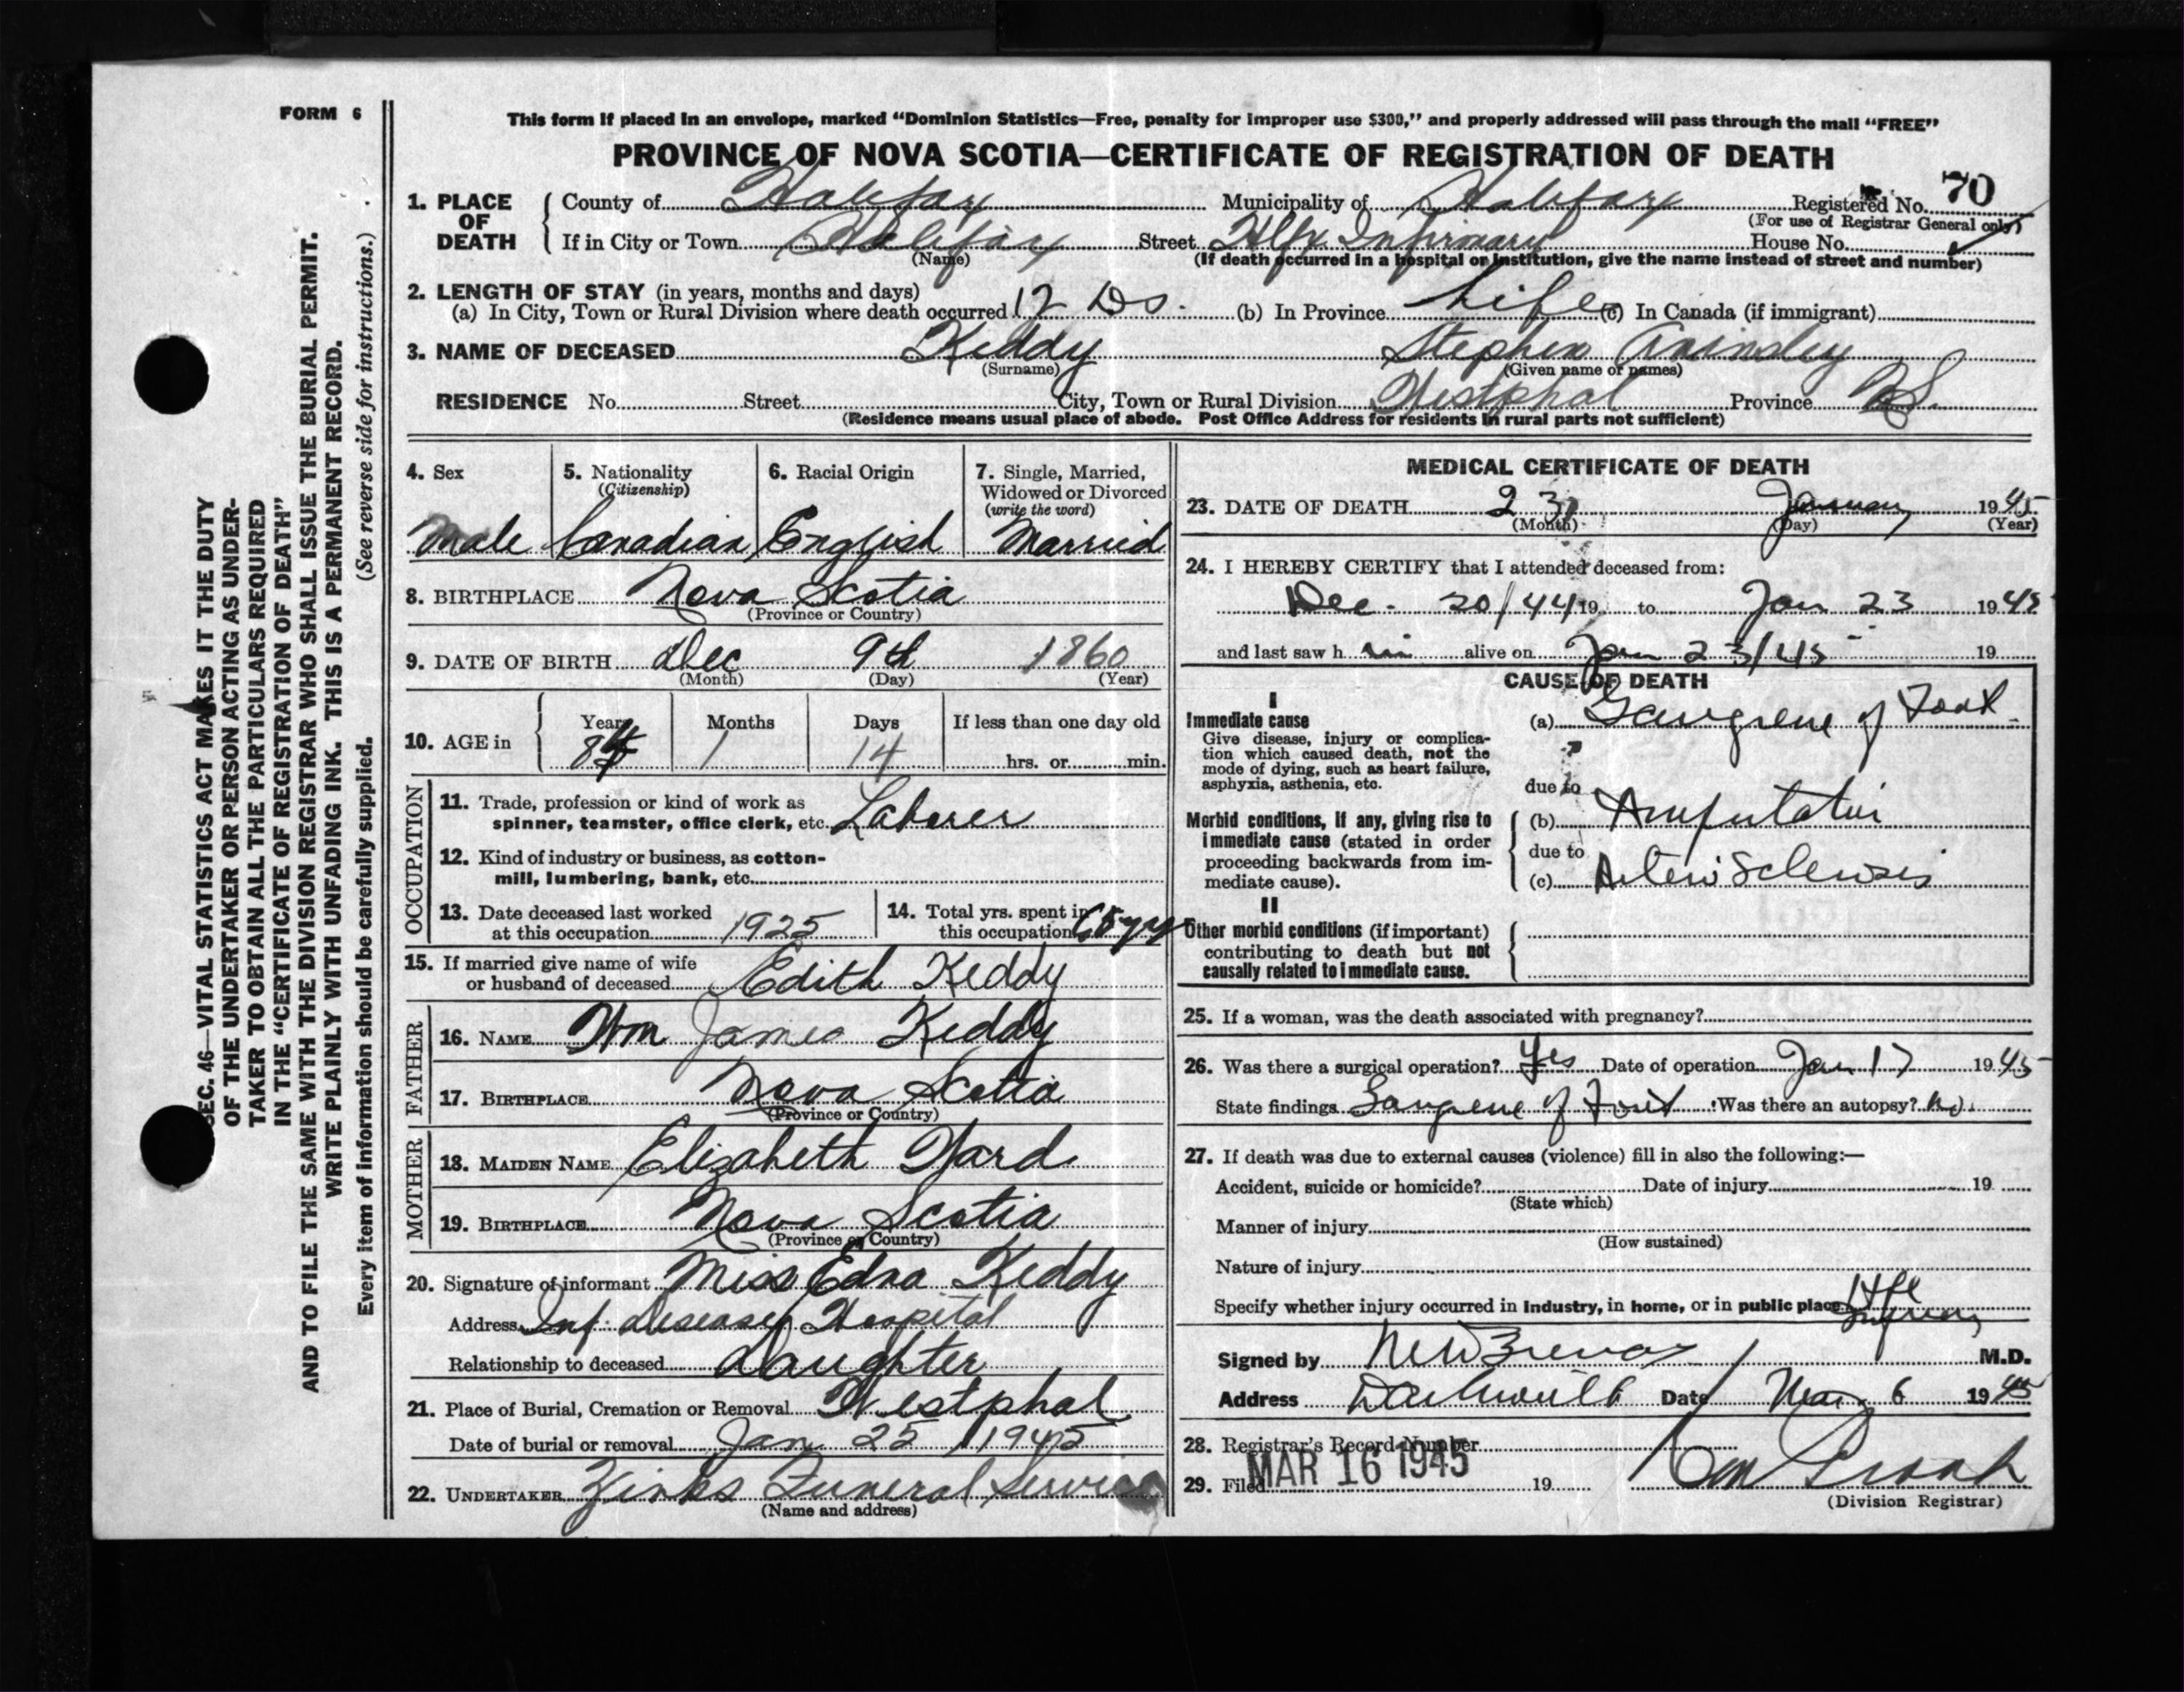 FORM 6
This form if placed in an envelope, marked "Dominion Statistics—Free, penalty for improper use $300," and properly addressed will pass through the mail "FREE"
PROVINCE OF NOVA SCOTIA—CERTIFICATE OF REGISTRATION OF DEATH
1. PLACE OF DEATH County of Halifax Municipality of Halifax Registered No. 70
(For use of Registrar General only)
If in City or Town Halifax Street Hlfx Infirmary House No.
(Name) (If death occurred in a hospital or institution, give the name instead of street and number)
2. LENGTH OF STAY (in years, months and days)
(a) In City, Town or Rural Division where death occurred 12 Ds. (b) In Province Life (c) In Canada (if immigrant)
3. NAME OF DECEASED Keddy Stephen
(Surname) (Given name or names)
RESIDENCE No. Street City, Town or Rural Division Westphal Province N.S.
(Residence means usual place of abode. Post Office Address for residents in rural parts not sufficient)
4. Sex 5. Nationality (Citizenship) 6. Racial Origin 7. Single, Married, Widowed or Divorced (write the word)
Male Canadian English Married
8. BIRTHPLACE Nova Scotia
(Province or Country)
9. DATE OF BIRTH Dec 9th 1860
(Month) (Day) (Year)
10. AGE in Years Months Days If less than one day old
84 1 14 hrs. or min.
OCCUPATION
11. Trade, profession or kind of work as
spinner, teamster, office clerk, etc. Laborer
12. Kind of industry or business, as cotton-
mill, lumbering, bank, etc.
13. Date deceased last worked
at this occupation 1925
14. Total yrs. spent in
this occupation 65 yrs
15. If married give name of wife
or husband of deceased Edith Keddy
FATHER
16. NAME Wm James Keddy
17. BIRTHPLACE Nova Scotia
(Province or Country)
MOTHER
18. MAIDEN NAME Elizabeth
19. BIRTHPLACE Nova Scotia
(Province or Country)
20. Signature of informant Miss Edna Keddy
Address Inf. Diseases Hospital
Relationship to deceased Daughter
21. Place of Burial, Cremation or Removal Westphal
Date of burial or removal Jan 25 1945
22. UNDERTAKER Zinks Funeral Service
(Name and address)
MEDICAL CERTIFICATE OF DEATH
23. DATE OF DEATH 23 January 1945
(Month) (Day) (Year)
24. I HEREBY CERTIFY that I attended deceased from:
Dec. 20/44 19 to Jan 23 1945
and last saw h im alive on Jan 23/45 19
CAUSE OF DEATH
I
Immediate cause
Give disease, injury or complica-
tion which caused death, not the
mode of dying, such as heart failure,
asphyxia, asthenia, etc.
(a) Gangrene of Foot
due to
Morbid conditions, if any, giving rise to
immediate cause (stated in order
proceeding backwards from im-
mediate cause).
(b) Amputation
due to
(c) Arteriosclerosis
II
Other morbid conditions (if important)
contributing to death but not
causally related to immediate cause.
25. If a woman, was the death associated with pregnancy?
26. Was there a surgical operation? Yes Date of operation Jan 17 1945
State findings Gangrene of Foot Was there an autopsy? No.
27. If death was due to external causes (violence) fill in also the following:—
Accident, suicide or homicide? Date of injury 19
(State which)
Manner of injury
(How sustained)
Nature of injury
Specify whether injury occurred in industry, in home, or in public place
Signed by M.D.
Address Date Mar 6 1945
28. Registrar's Record Number
29. Filed MAR 16 1945 19
(Division Registrar)
SEC. 46—VITAL STATISTICS ACT MAKES IT THE DUTY
OF THE UNDERTAKER OR PERSON ACTING AS UNDER-
TAKER TO OBTAIN ALL THE PARTICULARS REQUIRED
IN THE "CERTIFICATE OF REGISTRATION OF DEATH"
AND TO FILE THE SAME WITH THE DIVISION REGISTRAR WHO SHALL ISSUE THE BURIAL PERMIT.
WRITE PLAINLY WITH UNFADING INK. THIS IS A PERMANENT RECORD.
Every item of information should be carefully supplied. (See reverse side for instructions.)